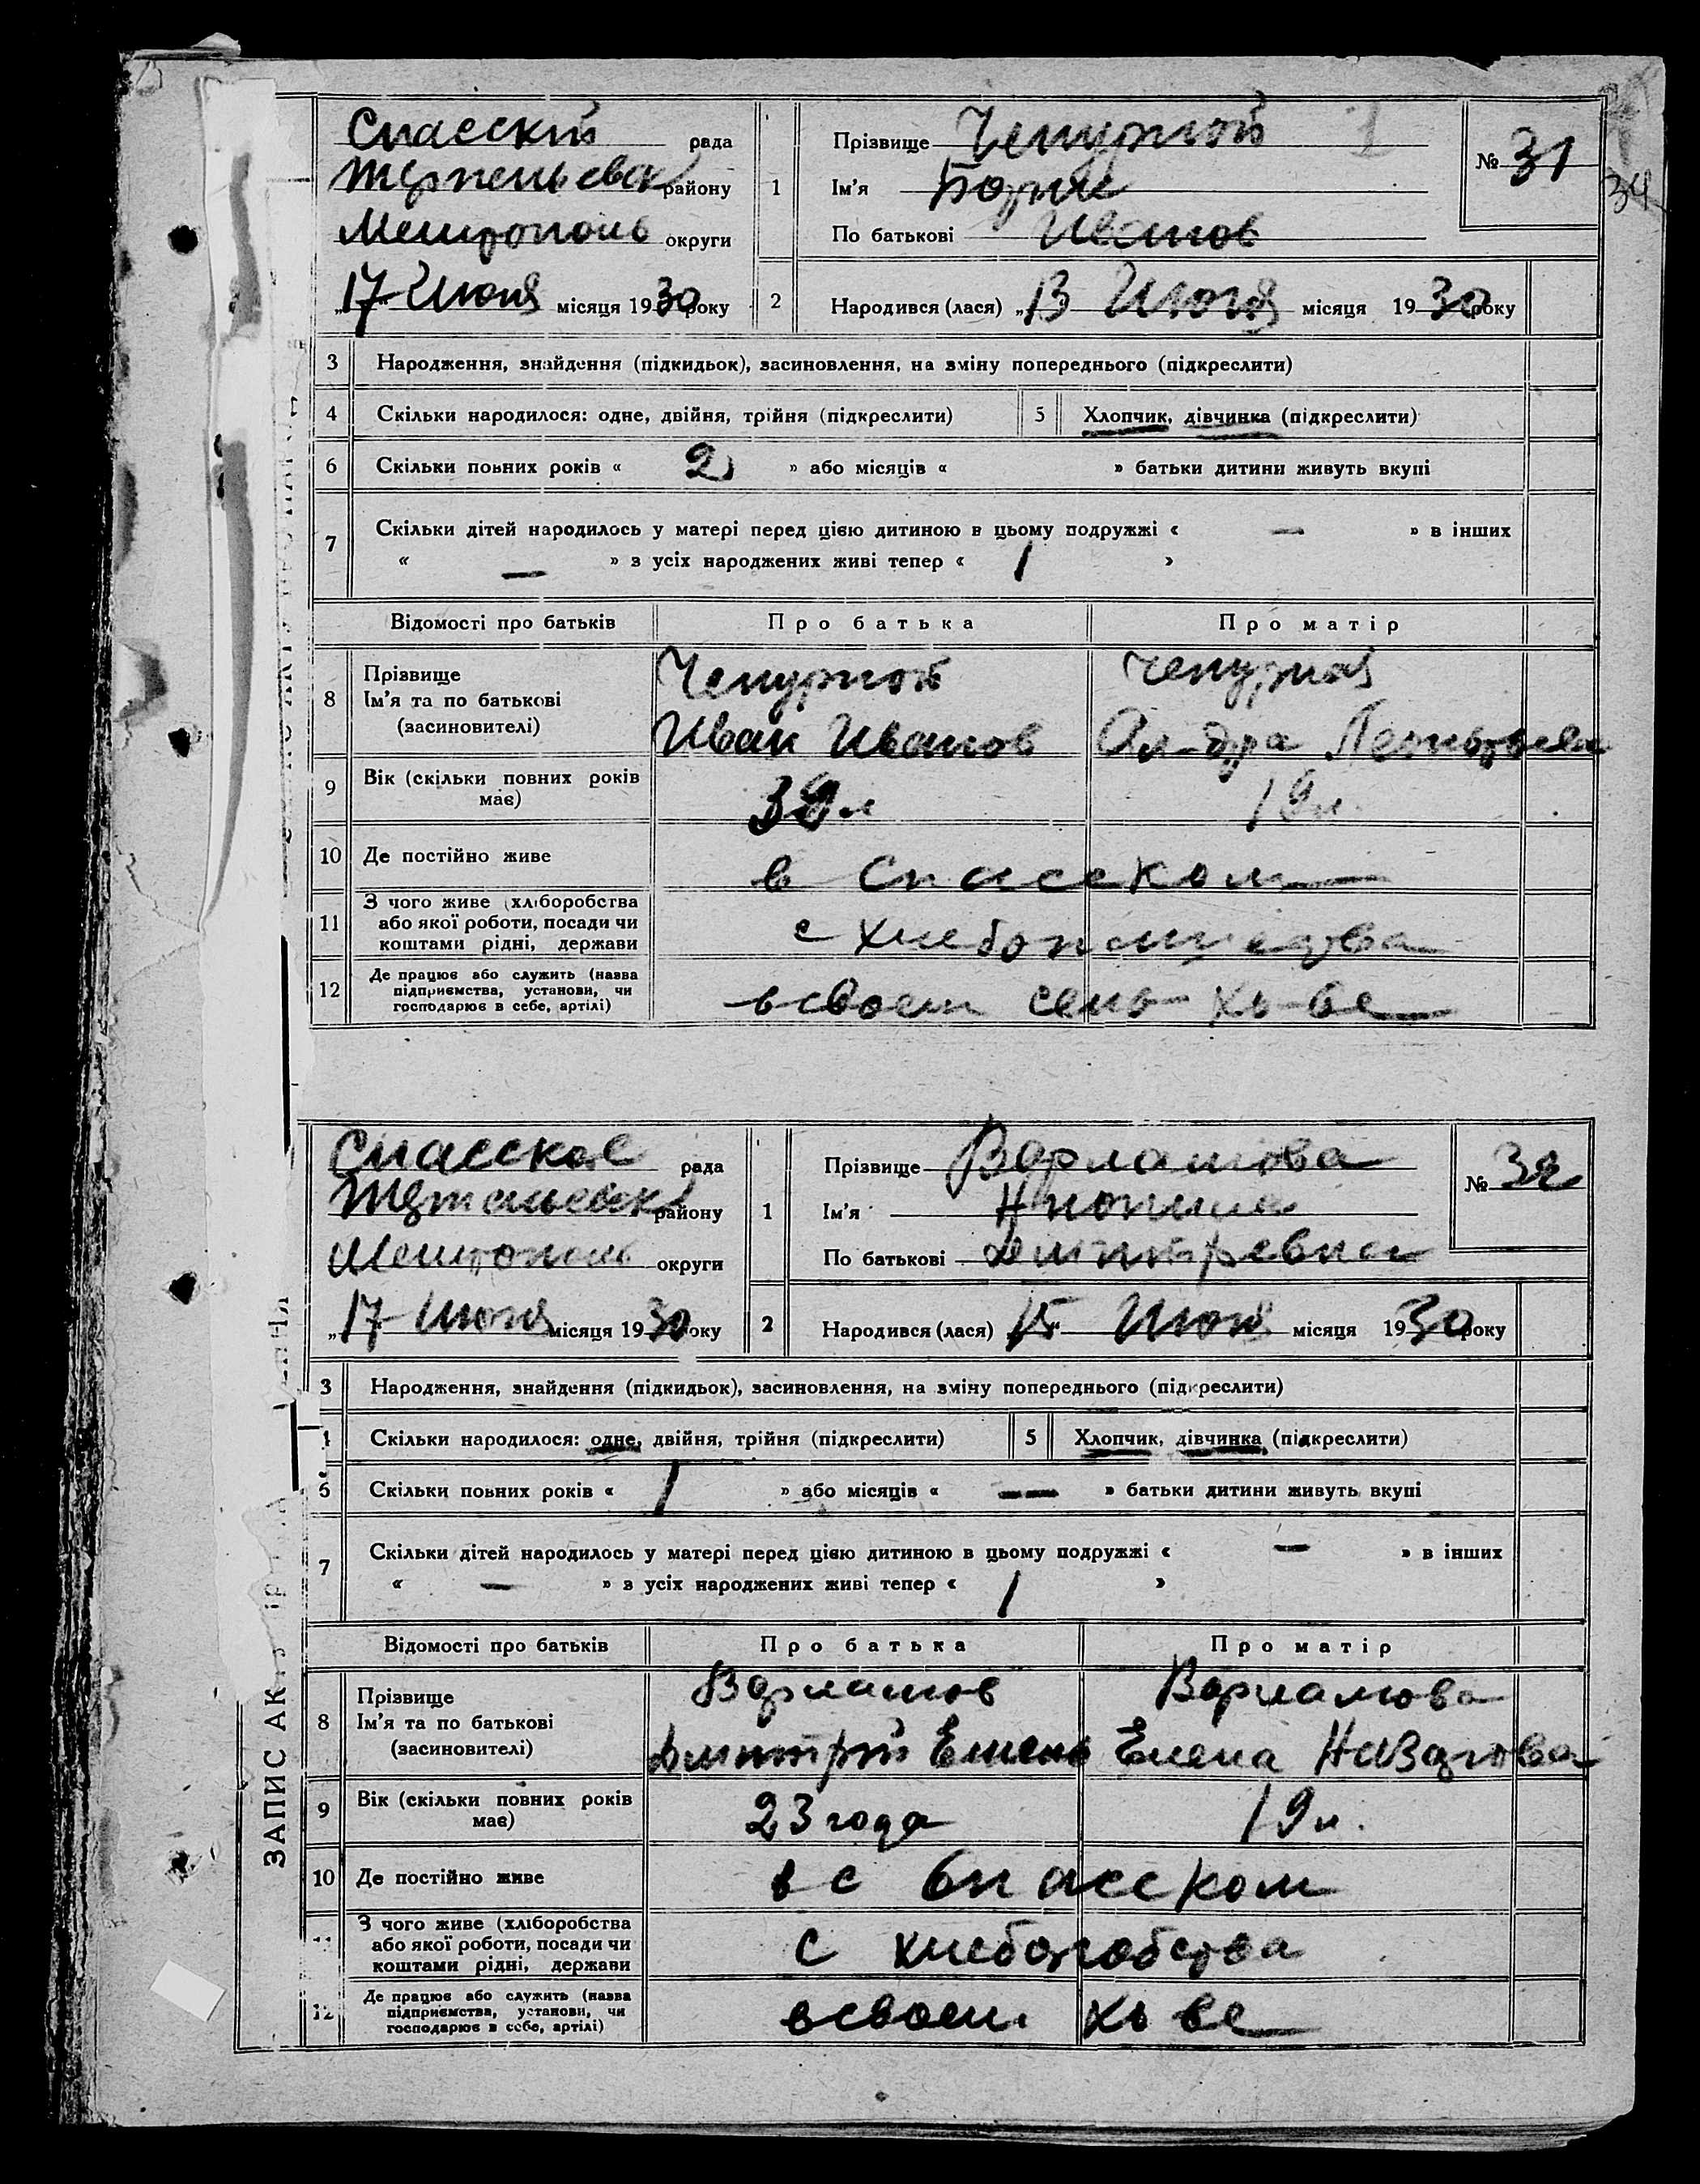 Спасский рада
району
Мелитополь округи
„17 Июня місяця 1930 року
1 Прізвище Чепурной
Ім'я Борис
По батькові Иванов
№ 31
34
2 Народився (лася) „13 Июня місяця 1930 року
3 Народження, знайдення (підкидьок), засиновлення, на зміну попереднього (підкреслити)
4 Скільки народилося: одне, двійня, трійня (підкреслити) 5 Хлопчик, дівчинка (підкреслити)
6 Скільки повних років « 2 » або місяців « » батьки дитини живуть вкупі
7 Скільки дітей народилось у матері перед цією дитиною в цьому подружжі « — » в інших
« — » з усіх народжених живі тепер « 1 »
Відомості про батьків Про батька Про матір
8 Прізвище Ім'я та по батькові (засиновителі)
Чепурной Чепурная
Иван Иванов Ал-дра Леонтьева
9 Вік (скільки повних років має) 19 л.
10 Де постійно живе в Спасском
11 З чого живе (хліборобства або якої роботи, посади чи коштами рідні, держави
с
12 Де працює або служить (назва підприємства, установи, чи господарює в себе, артілі)
в своем сель-хь-ве
Спасское рада
району
Мелитополь округи
„17 Июня місяця 1930 року
1 Прізвище Варламова
Ім'я
По батькові Дмитревна
№ 32
2 Народився (лася) „15 Июня місяця 1930 року
3 Народження, знайдення (підкидьок), засиновлення, на зміну попереднього (підкреслити)
4 Скільки народилося: одне, двійня, трійня (підкреслити) 5 Хлопчик, дівчинка (підкреслити)
6 Скільки повних років « 1 » або місяців « — » батьки дитини живуть вкупі
7 Скільки дітей народилось у матері перед цією дитиною в цьому подружжі « — » в інших
« — » з усіх народжених живі тепер « 1 »
Відомості про батьків Про батька Про матір
8 Прізвище Ім'я та по батькові (засиновителі)
Варламов Варламова
Дмитрий Емель Елена Назарова
9 Вік (скільки повних років має) 23 года 19 л.
10 Де постійно живе в с Спасском
11 З чого живе (хліборобства або якої роботи, посади чи коштами рідні, держави
с хлеборобства
12 Де працює або служить (назва підприємства, установи, чи господарює в себе, артілі)
в своем хь ве
ЗАПИС АКТУ